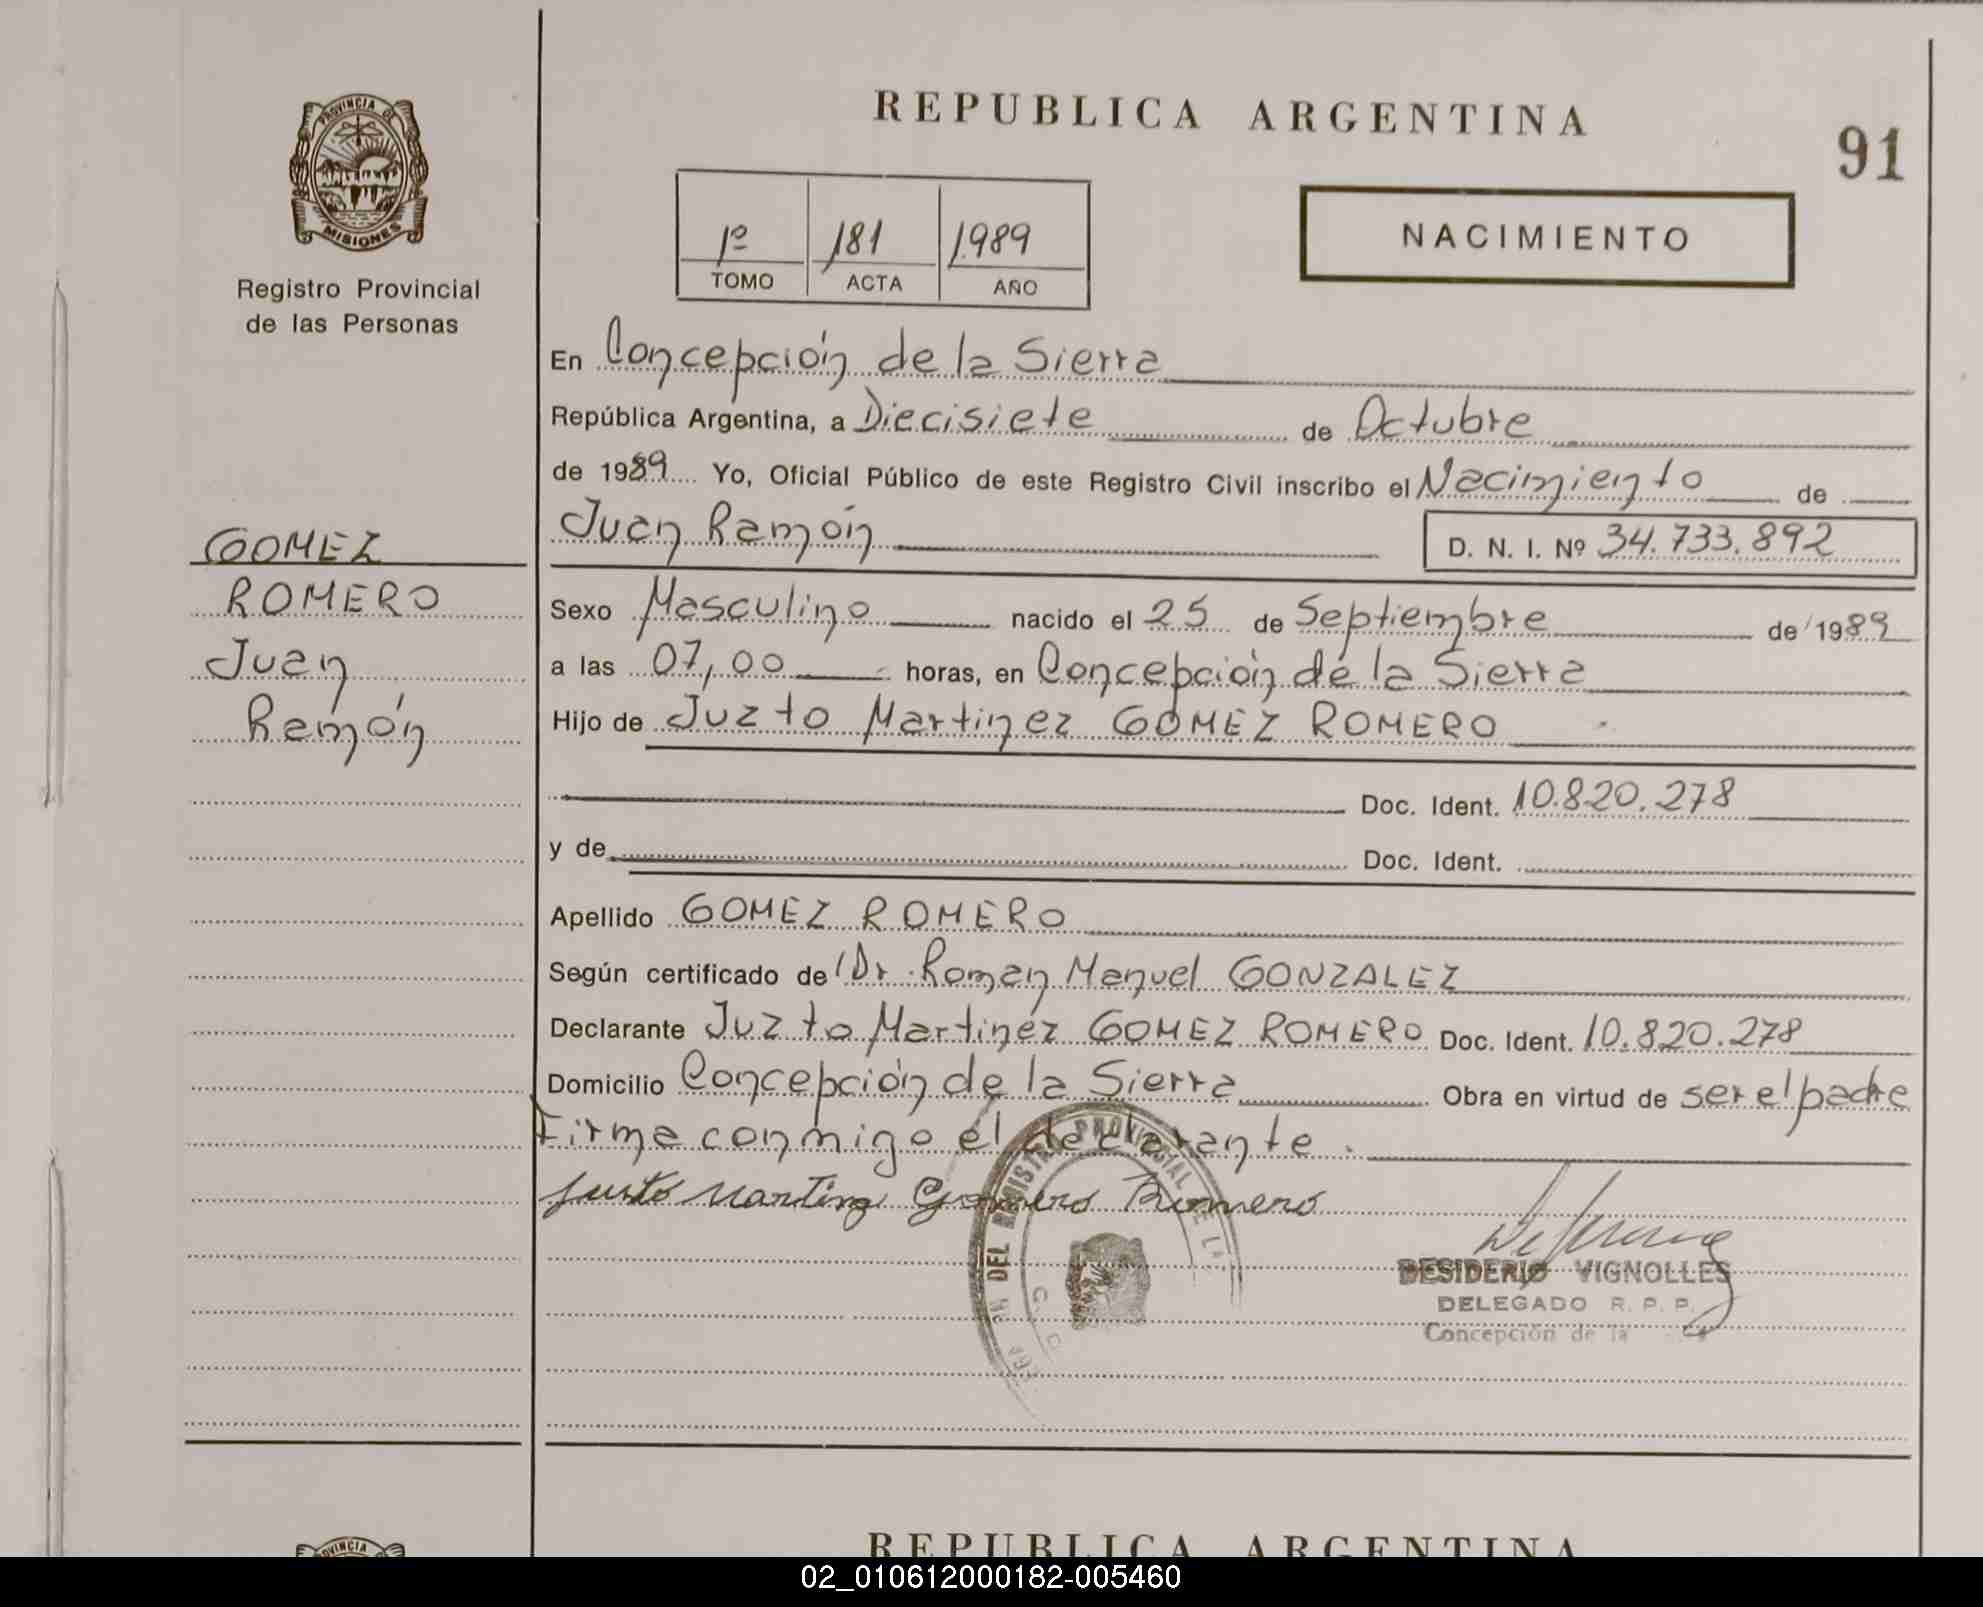 PROVINCIA DE
MISIONES
Registro Provincial
de las Personas
REPUBLICA ARGENTINA
91
1º 181 1.989
TOMO ACTA AÑO
NACIMIENTO
En Concepción de la Sierra
República Argentina, a Diecisiete de Octubre
de 1989 Yo, Oficial Público de este Registro Civil inscribo el Nacimiento de
GOMEZ
ROMERO
Juan
Ramón
Juan Ramón D. N. I. Nº 34.733.892
Sexo Masculino nacido el 25 de Septiembre de 1989
a las 07,00 horas, en Concepción de la Sierra
Hijo de Juzto Martinez GOMEZ ROMERO
Doc. Ident. 10.820.278
y de Doc. Ident.
Apellido GOMEZ ROMERO
Según certificado de Dr. Roman Manuel GONZALEZ
Declarante Juzto Martinez GOMEZ ROMERO Doc. Ident. 10.820.278
Domicilio Concepción de la Sierra Obra en virtud de ser el padre
Firma conmigo el declarante.
Justo Martinz Gomero Romero
DEL REGISTRO PROVINCIAL DE LA
DESIDERIO VIGNOLLES
DELEGADO R. P. P.
Concepción de la
PROVINCIA
REPUBLICA ARGENTINA
02_010612000182-005460